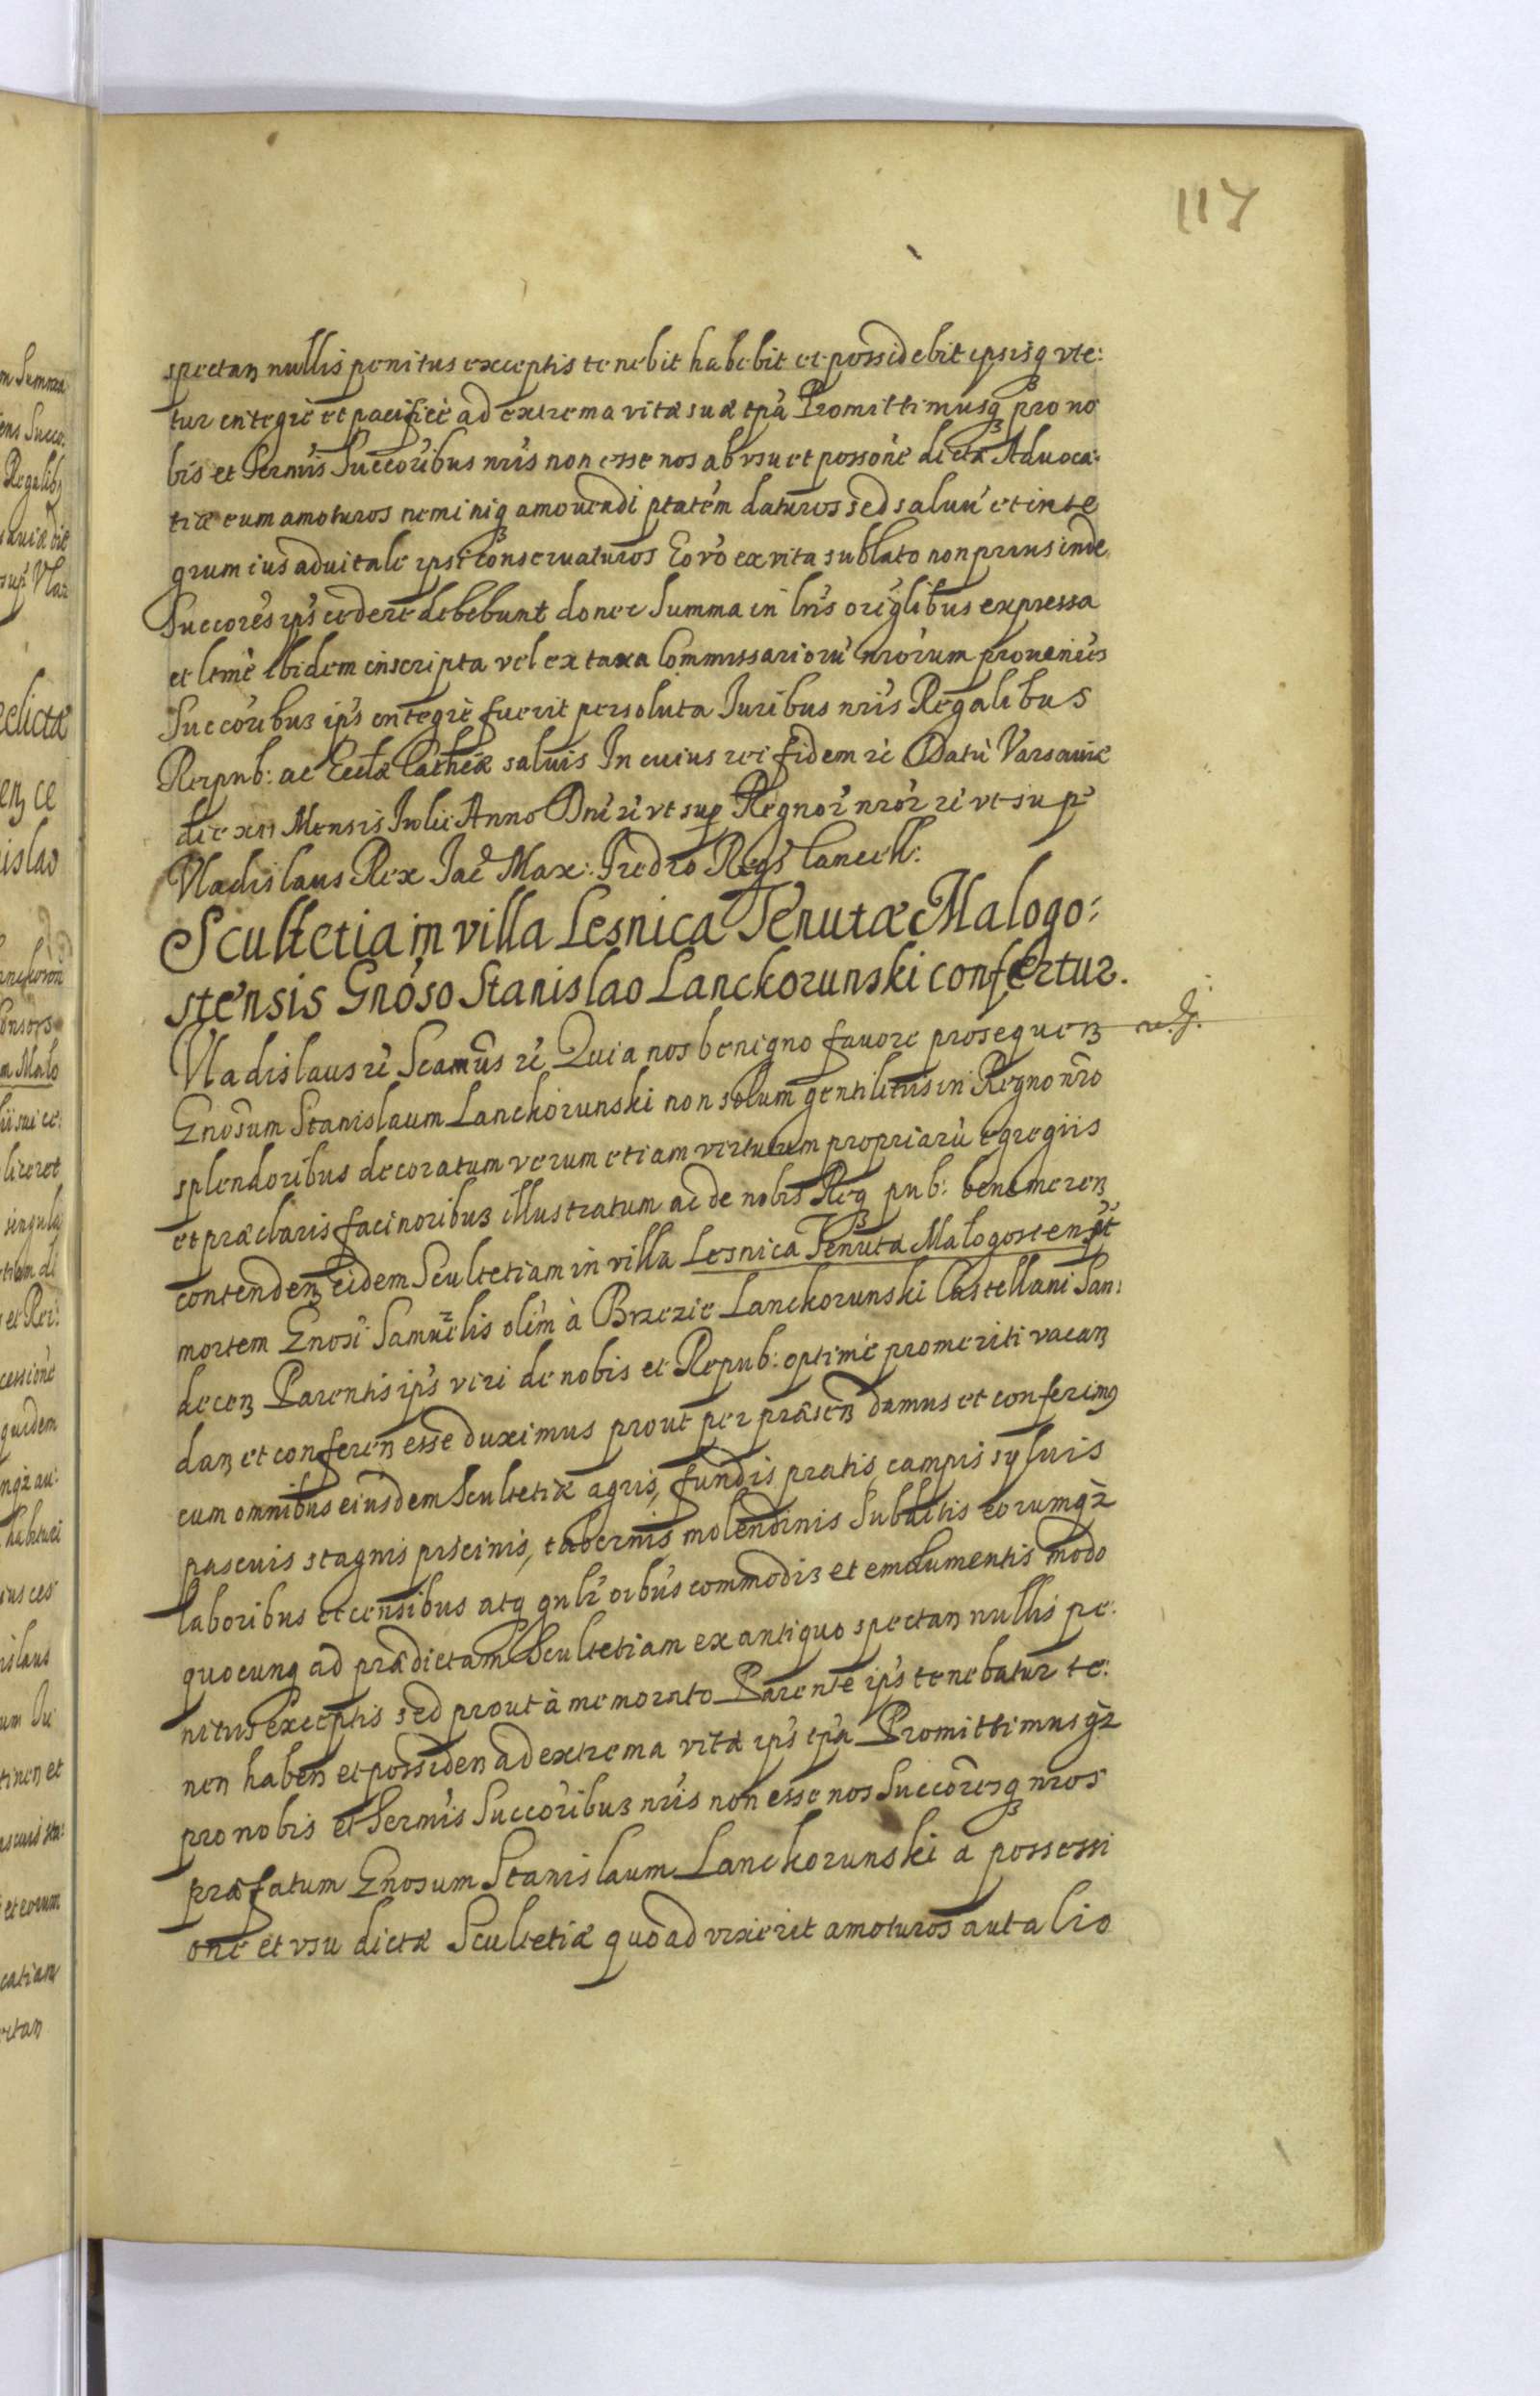 117
spectan nullis penitus exceptis tenebit habebit et possidebit ipsisq vte:
tur integre et pacifice ad extrema vitæ suæ tpa Promittimusq pro no
bis et Sermis Succoribus nris non esse nos ab vsu et possone dictæ Aduoca:
tiæ eum amoturos neminiq amouendi ptatem daturos sed saluu et inte
grum ius aduitale ipsi conseruaturos Eo vo ex vita sublato non prius inde
Succores ips cedere debebunt donec Summa in lris origlibus expressa
et ltme ibidem inscripta vel ex taxa Commissarioru nrorum proueniens
Succoribus ips integre fuerit persoluta Iuribus nris Regalibus
Reipub: ac Eccla Cathcæ saluis In cuius rei fidem rc Datu Varsauiæ
die XII Mensis Iulii Anno Dni rc vt sup Regnor nror rc vt sup
Vladislaus Rex Jac Max: Fredro Regs Cancell:
Scultetia in villa Lesnica Tenutæ Malogo:
stensis Gnoso Stanislao Lanckorunski confertur.
Vladislaus rc Seamus rc Quia nos benigno fauore prosequen
Gnosum Stanislaum Lanckorunski non solum gentilitiis in Regno nro
splendoribus decoratum verum etiam virtutum propriaru egregiis
et præclaris facinoribus illustratum ac de nobis Req pub: benemeren
contenden eidem Scultetiam in villa Lesnica Tenuta Malogosten pt
mortem Gnosi Samuelis olim à Brzezie Lanckorunski Castellani San:
decen Parentis ips viri de nobis et Repub: optime promeriti vacan
dan et conferen esse duximus prout per præsen damus et conferimus
cum omnibus eiusdem Scultetiæ agris, fundis pratis, campis syluis
pascuis stagnis piscinis, tabernis molendinis Subditis eorumq
laboribus et censibus atq gnlr oibus commodis et emolumentis modo
quocunq ad prædictam Scultetiam ex antiquo spectan nullis pe:
nitus exceptis sed prout à memorato Parente ips tenebatur te:
nen haben et possiden ad extrema vitæ ips tpa Promittimusq
pro nobis et Sermis Succoribus nris non esse nos Succoresq nros
præfatum Gnosum Stanislaum Lanckorunski a possessi
one et vsu dictæ Scultetiæ quoad vixerit amoturos aut alio